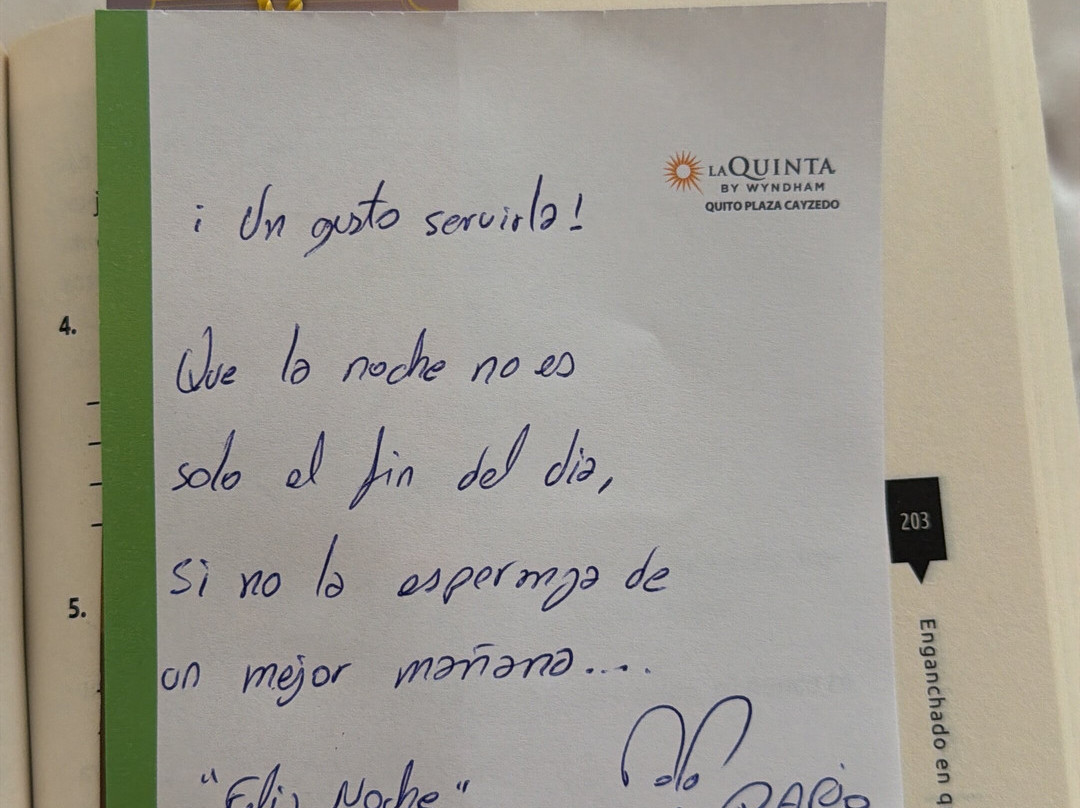 LAQUINTA
BY WYNDHAM
QUITO PLAZA CAYZEDO
¡ Un gusto servirla!
Que la noche no es
solo el fin del dia,
si no la esperanza de
un mejor mañana....
"Feliz Noche"
DARÍO
4.
5.
203
Enganchado en q